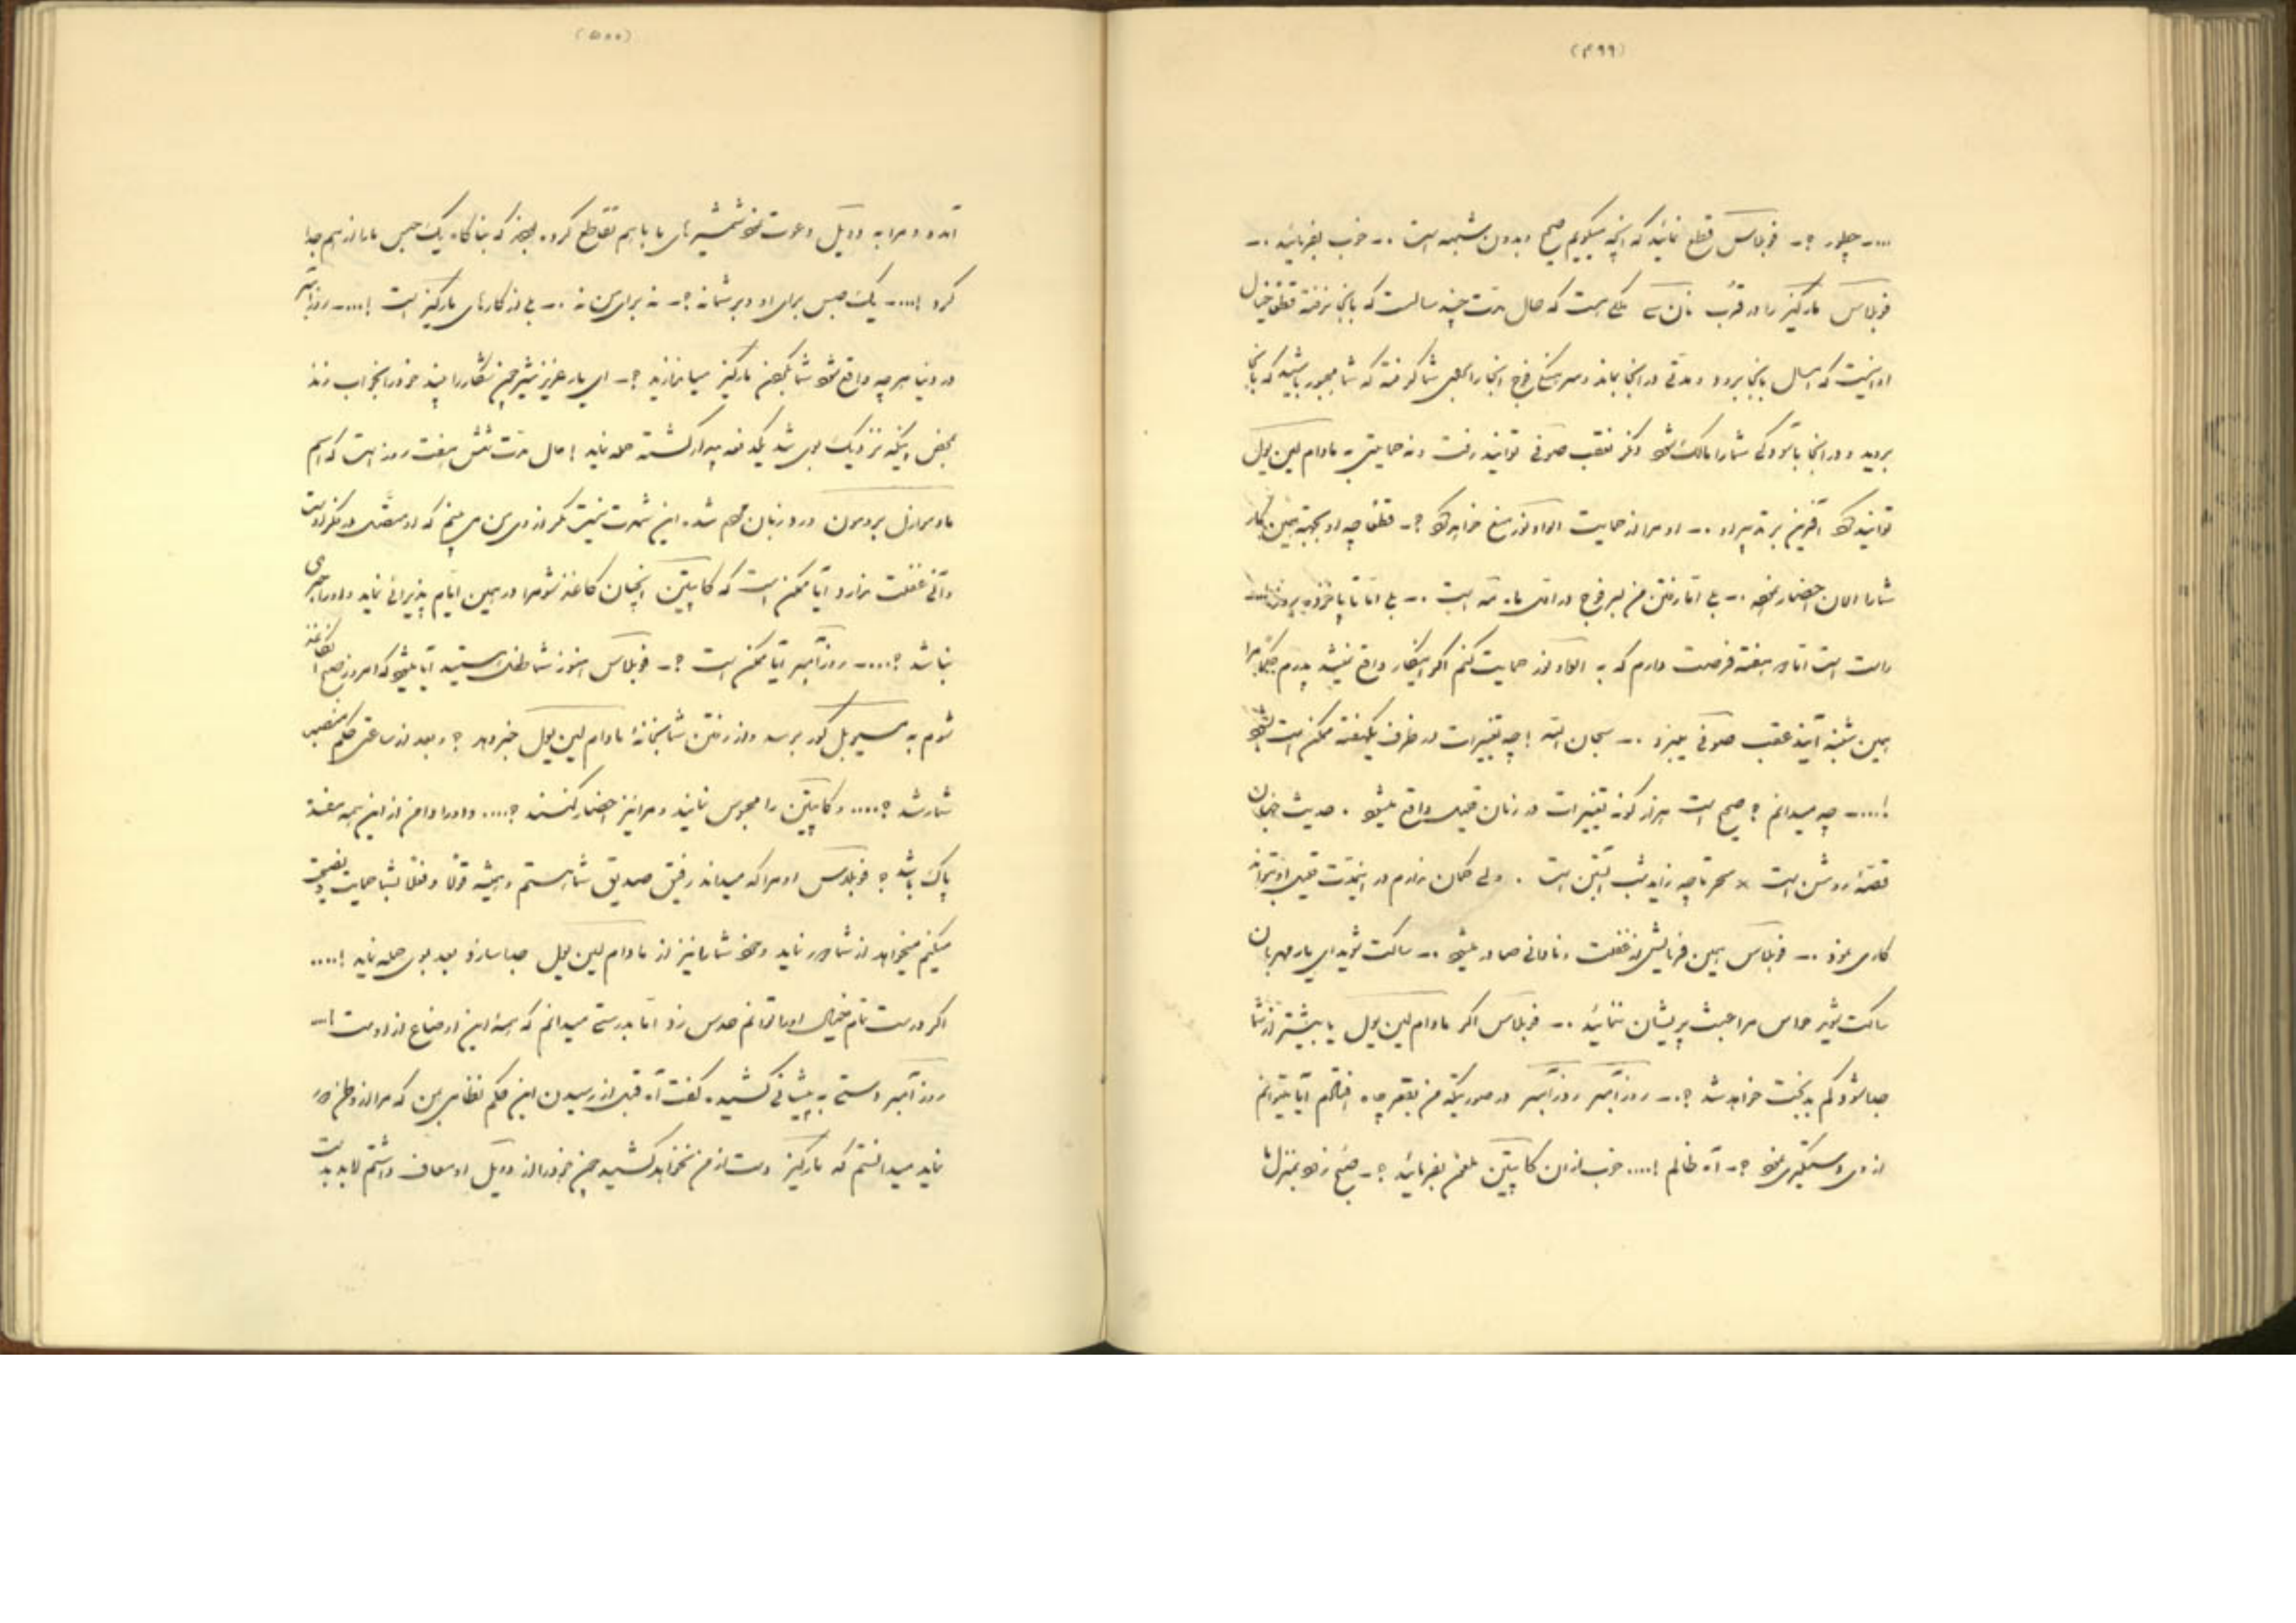 (۴۹۹)
....- چطور ؟- فوبلاس قطع نمائید که آنچه میگویم صحیح و بدون شبهه است .- خوب بفرمائید .-
فوبلاس مارکیز را در قرب نان‌سی ملکی هست که حال مدت چند سالست که بآنجا نرفته قطعا خیال
او اینست که امسال بآنجا برود و مدتی در آنجا بماند و سرهنگی فوج آنجا را بجهة شما گرفته که شما مجبور باشید که بآنجا
بروید و در آنجا بآسودگی شما را مالک شود دیگر نتعقب صوفی توانید رفت و نه حمایتی به مادام لین‌یول
توانید کرد آفرین بر تدبیر او .- او مرا از حمایت الواونوز منع خواهد کرد ؟- قطعا چه او بجهة همین کار
شما را الان احضار نموده .- بلی اما رفتن من بسر فوج در اول ماه مه است .- بلی اما تا پانزده روز
راست است اما دو هفته فرصت دارم که به الواونوز حمایت کنم اگر اینکار واقع نمیشد پدرم حکما مرا
همین شنبه آینده عقب صوفی میبرد .- سبحان الله ! چه تغییرات در ظرف یکهفته ممکن است بشود
!....- چه میدانم ؟ صحیح است هزار گونه تغییرات در زمان قلیل واقع میشود . حدیث جهان
قصهٔ روشن است × سحر تا چه زاید شب آبستن است . ولی گمان ندارم در اینمدت قلیل او بتواند
کاری نمود .- فوبلاس همین فرمایش از غفلت و نادانی صادر میشود .- ساکت شوید ای یار مهربان
ساکت شوید حواس مرا عبث پریشان ننمائید .- فوبلاس اگر مادام لین‌یول یا بیشتر از شما
جدا شود کم بدبخت خواهد شد ؟.- روزآمبر روزآمبر در صورتیکه من بقعر چاه افتادم آیا میتوانم
از وی دستگیری نمود ؟- آه ظالم !.... خوب از آن کاپیتن ملعون بفرمائید ؟- صبح زود بمنزل ما
(۵۰۰)
آمده و مرا به دوئل دعوت نمود شمشیرهای ما باهم تقاطع کرده بودند که بناگاه یک حبس ما را از هم جدا
کرد !....- یک حبس برای او و بر شما نه ؟- نه برای من نه .- بلی از کارهای مارکیز است !....- روزآمبر
در دنیا هر چه واقع شود شما بگردن مارکیز میاندازید ؟- ای یار عزیز شیر چون شکار را بیند خود را بخواب زند
بمحض اینکه نزدیک بوی شد یکدفعه بیدار گشته حمله نماید ! حال مدت شش هفت روز است که اسم
مادموازل بروسون درد زبان مردم شده این شهرت نیست مگر از وی من می‌بینم که او متصل در فکر اوست
و آنی غفلت ندارد آیا ممکن است که کاپیتن آنچنان کاغذ شوم را در همین ایام پذیرائی نماید و او را خبری
نباشد ؟....- روزآمبر آیا ممکن است ؟- فوبلاس هنوز شما طفل هستید آیا میشود که امروز صبح آن کاغذ
شوم به مسیو بل‌کور برسد و از رفتن شما بخانهٔ مادام لین‌یول خبر دهد ؟ و بعد از ساعتی حکم منصب
شما رسد ؟.... و کاپیتن را محبوس نمایند و مرا نیز احضار کنند ؟.... و او را دامن از این همه مفسده
پاک باشد ؟ فوبلاس او مرا که میداند رفیق صدیق شما هستم و همیشه قولا و فعلا بشما حمایت و نصیحت
میکنم میخواهد از شما دور نماید و خود شما را نیز از مادام لین‌یول جدا سازد بعد بوی حمله نماید !....
اگر درست تمام خیال او را نتوانم حدس زد اما بدرستی میدانم که همهٔ این اوضاع از اوست !-
روزآمبر دستی به پیشانی کشیده گفت آه قبل از رسیدن این حکم نظامی بمن که مرا از وطن دور
نماید میدانستم که مارکیز دست از من نخواهد کشید چون خود را از دوئل او معاف داشتم لابد بد